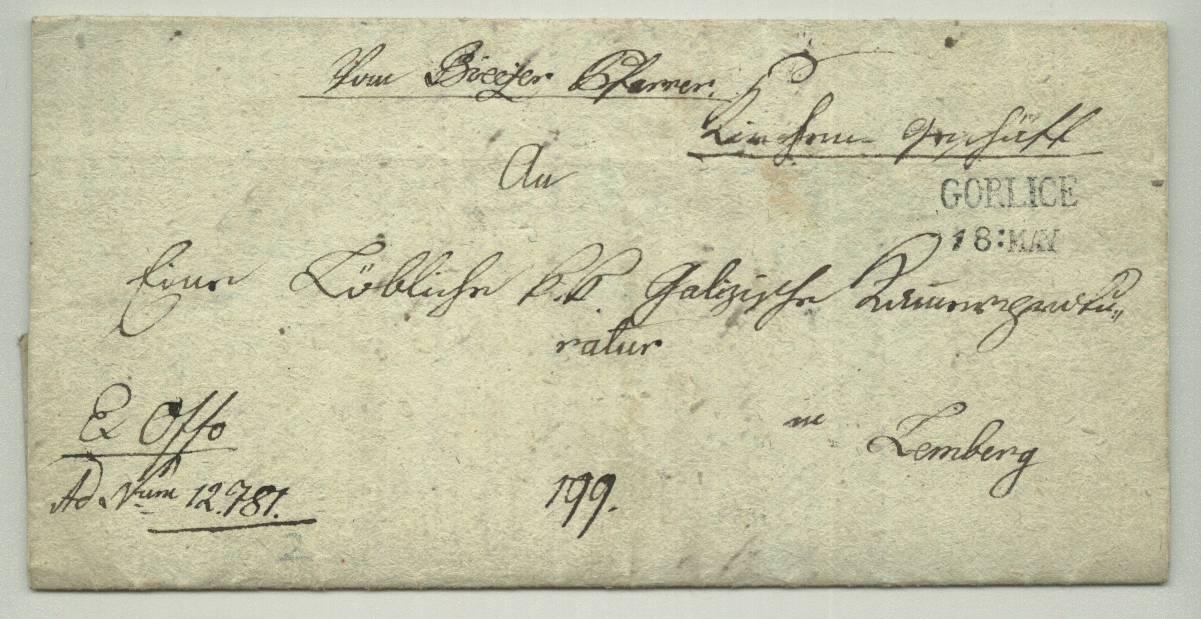 Vom Bieczer Pfarrer.
Kirchen Geschäft
An
GORLICE
18:MAY
Eine Löbliche k.k Galizische Kammerprocu„
ratur
Ex Offo
in Lemberg
Ad Num 12.781.
199.
2